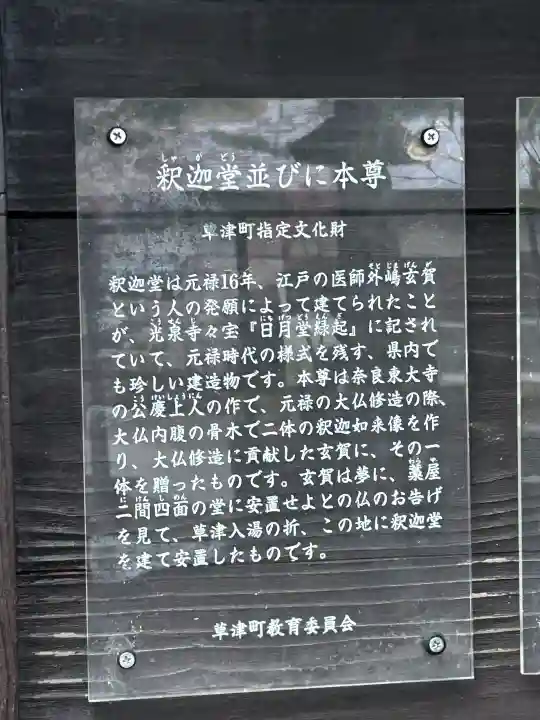 しゃかどう
釈迦堂並びに本尊
草津町指定文化財
釈迦堂は元禄16年、江戸の医師外嶋玄賀
という人の発願によって建てられたこと
が、光泉寺々宝『日月堂縁起』に記され
ていて、元禄時代の様式を残す、県内で
も珍しい建造物です。本尊は奈良東大寺
の公慶上人の作で、元禄の大仏修造の際、
大仏内腹の骨木で二体の釈迦如来像を作
り、大仏修造に貢献した玄賀に、その一
体を贈ったものです。玄賀は夢に、藁屋
二間四面の堂に安置せよとの仏のお告げ
を見て、草津入湯の折、この地に釈迦堂
を建て安置したものです。
草津町教育委員会